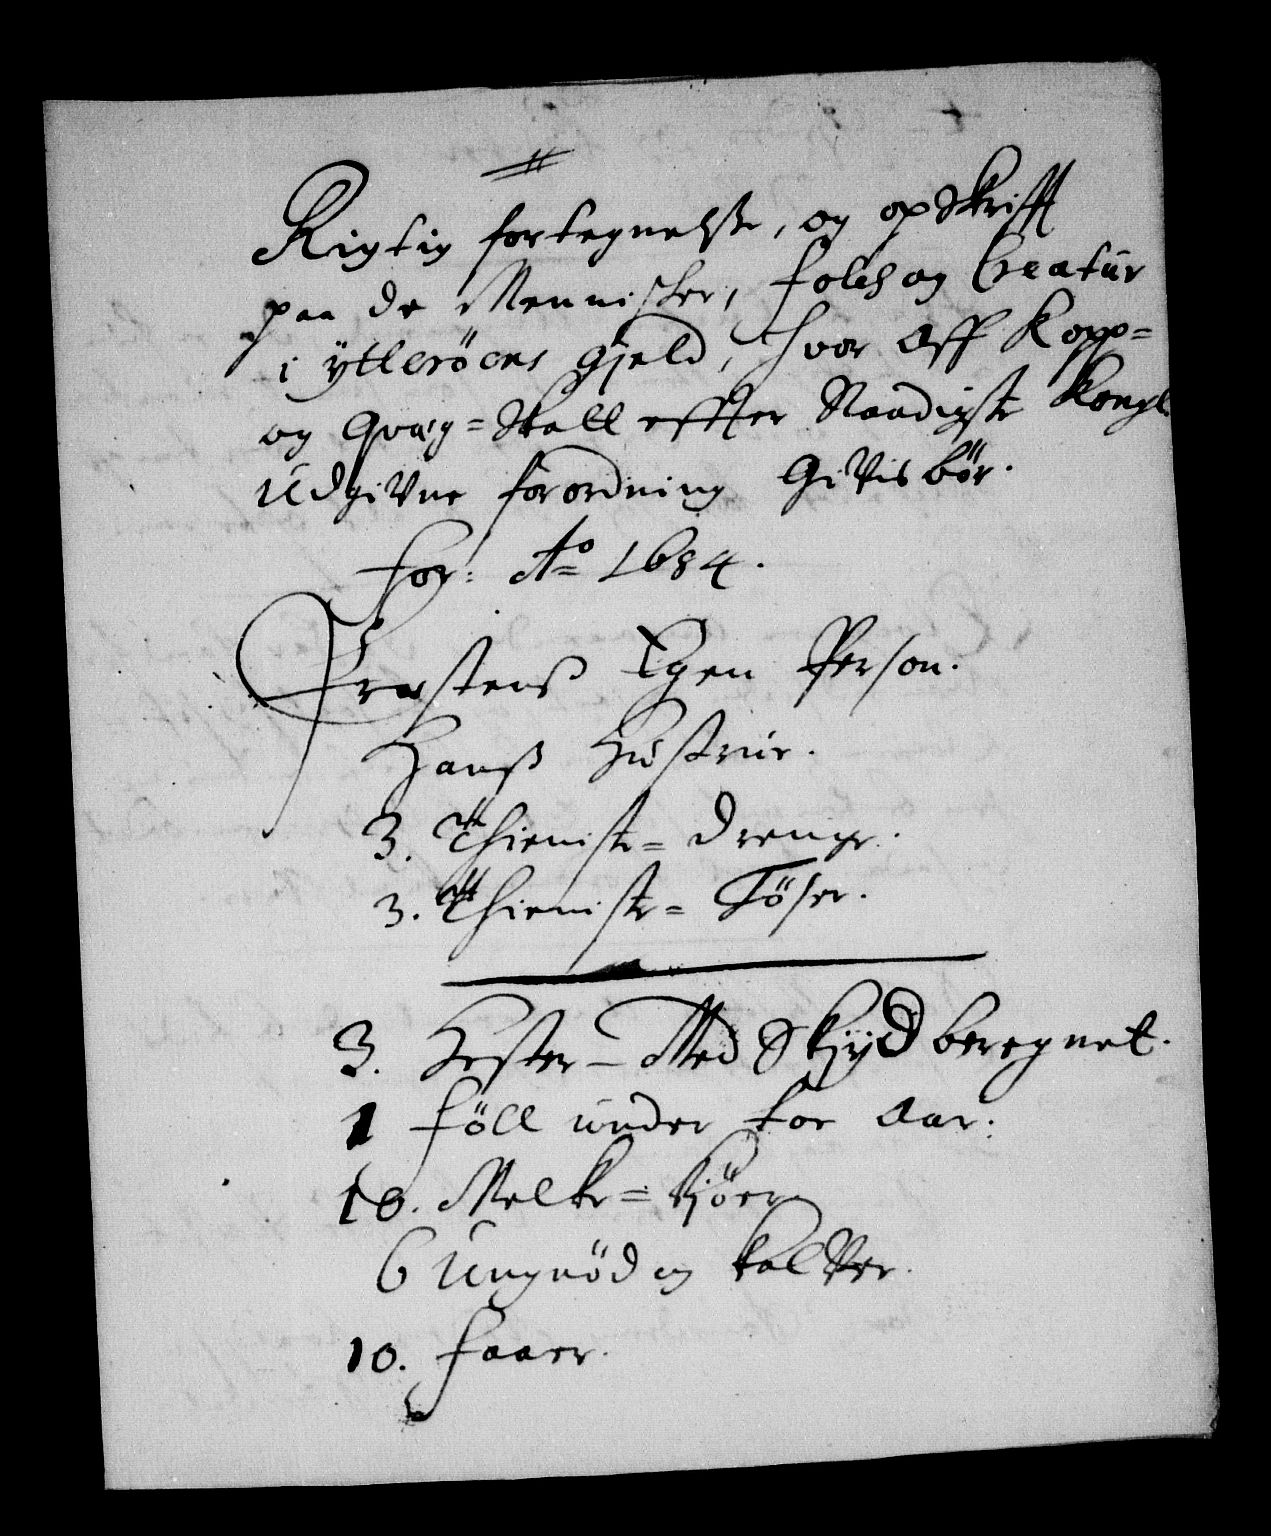 Rigtig fortegnelse, og opskrifft
paa de Mennisker, folch og Creatur
i ÿtterøens gjeld, hvor aff Kopp=
og Qvæg=skatt effter Naadigste Kongl.
Udgivne forordning Givis bör.
for: Ao 1684.
Præstens Egen Person.
Hanß Hustrue.
3. Thieniste= Drenge.
3. Thieniste= Töser.
3. Hester – Med Skÿds beregnet.
1 föll under toe Aar.
10. Melke= Kjöer
6 Ungnöd og Kalfver.
10. faaer.